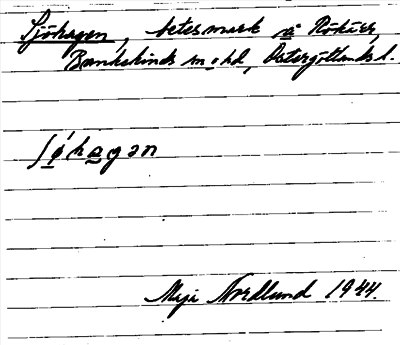 Sjöhagen, betesmark å Rökier,
Bankekinds sn o hd, Östergötlands l.
ʃø̱´ha̱gən
Maja Nordlund 1944.